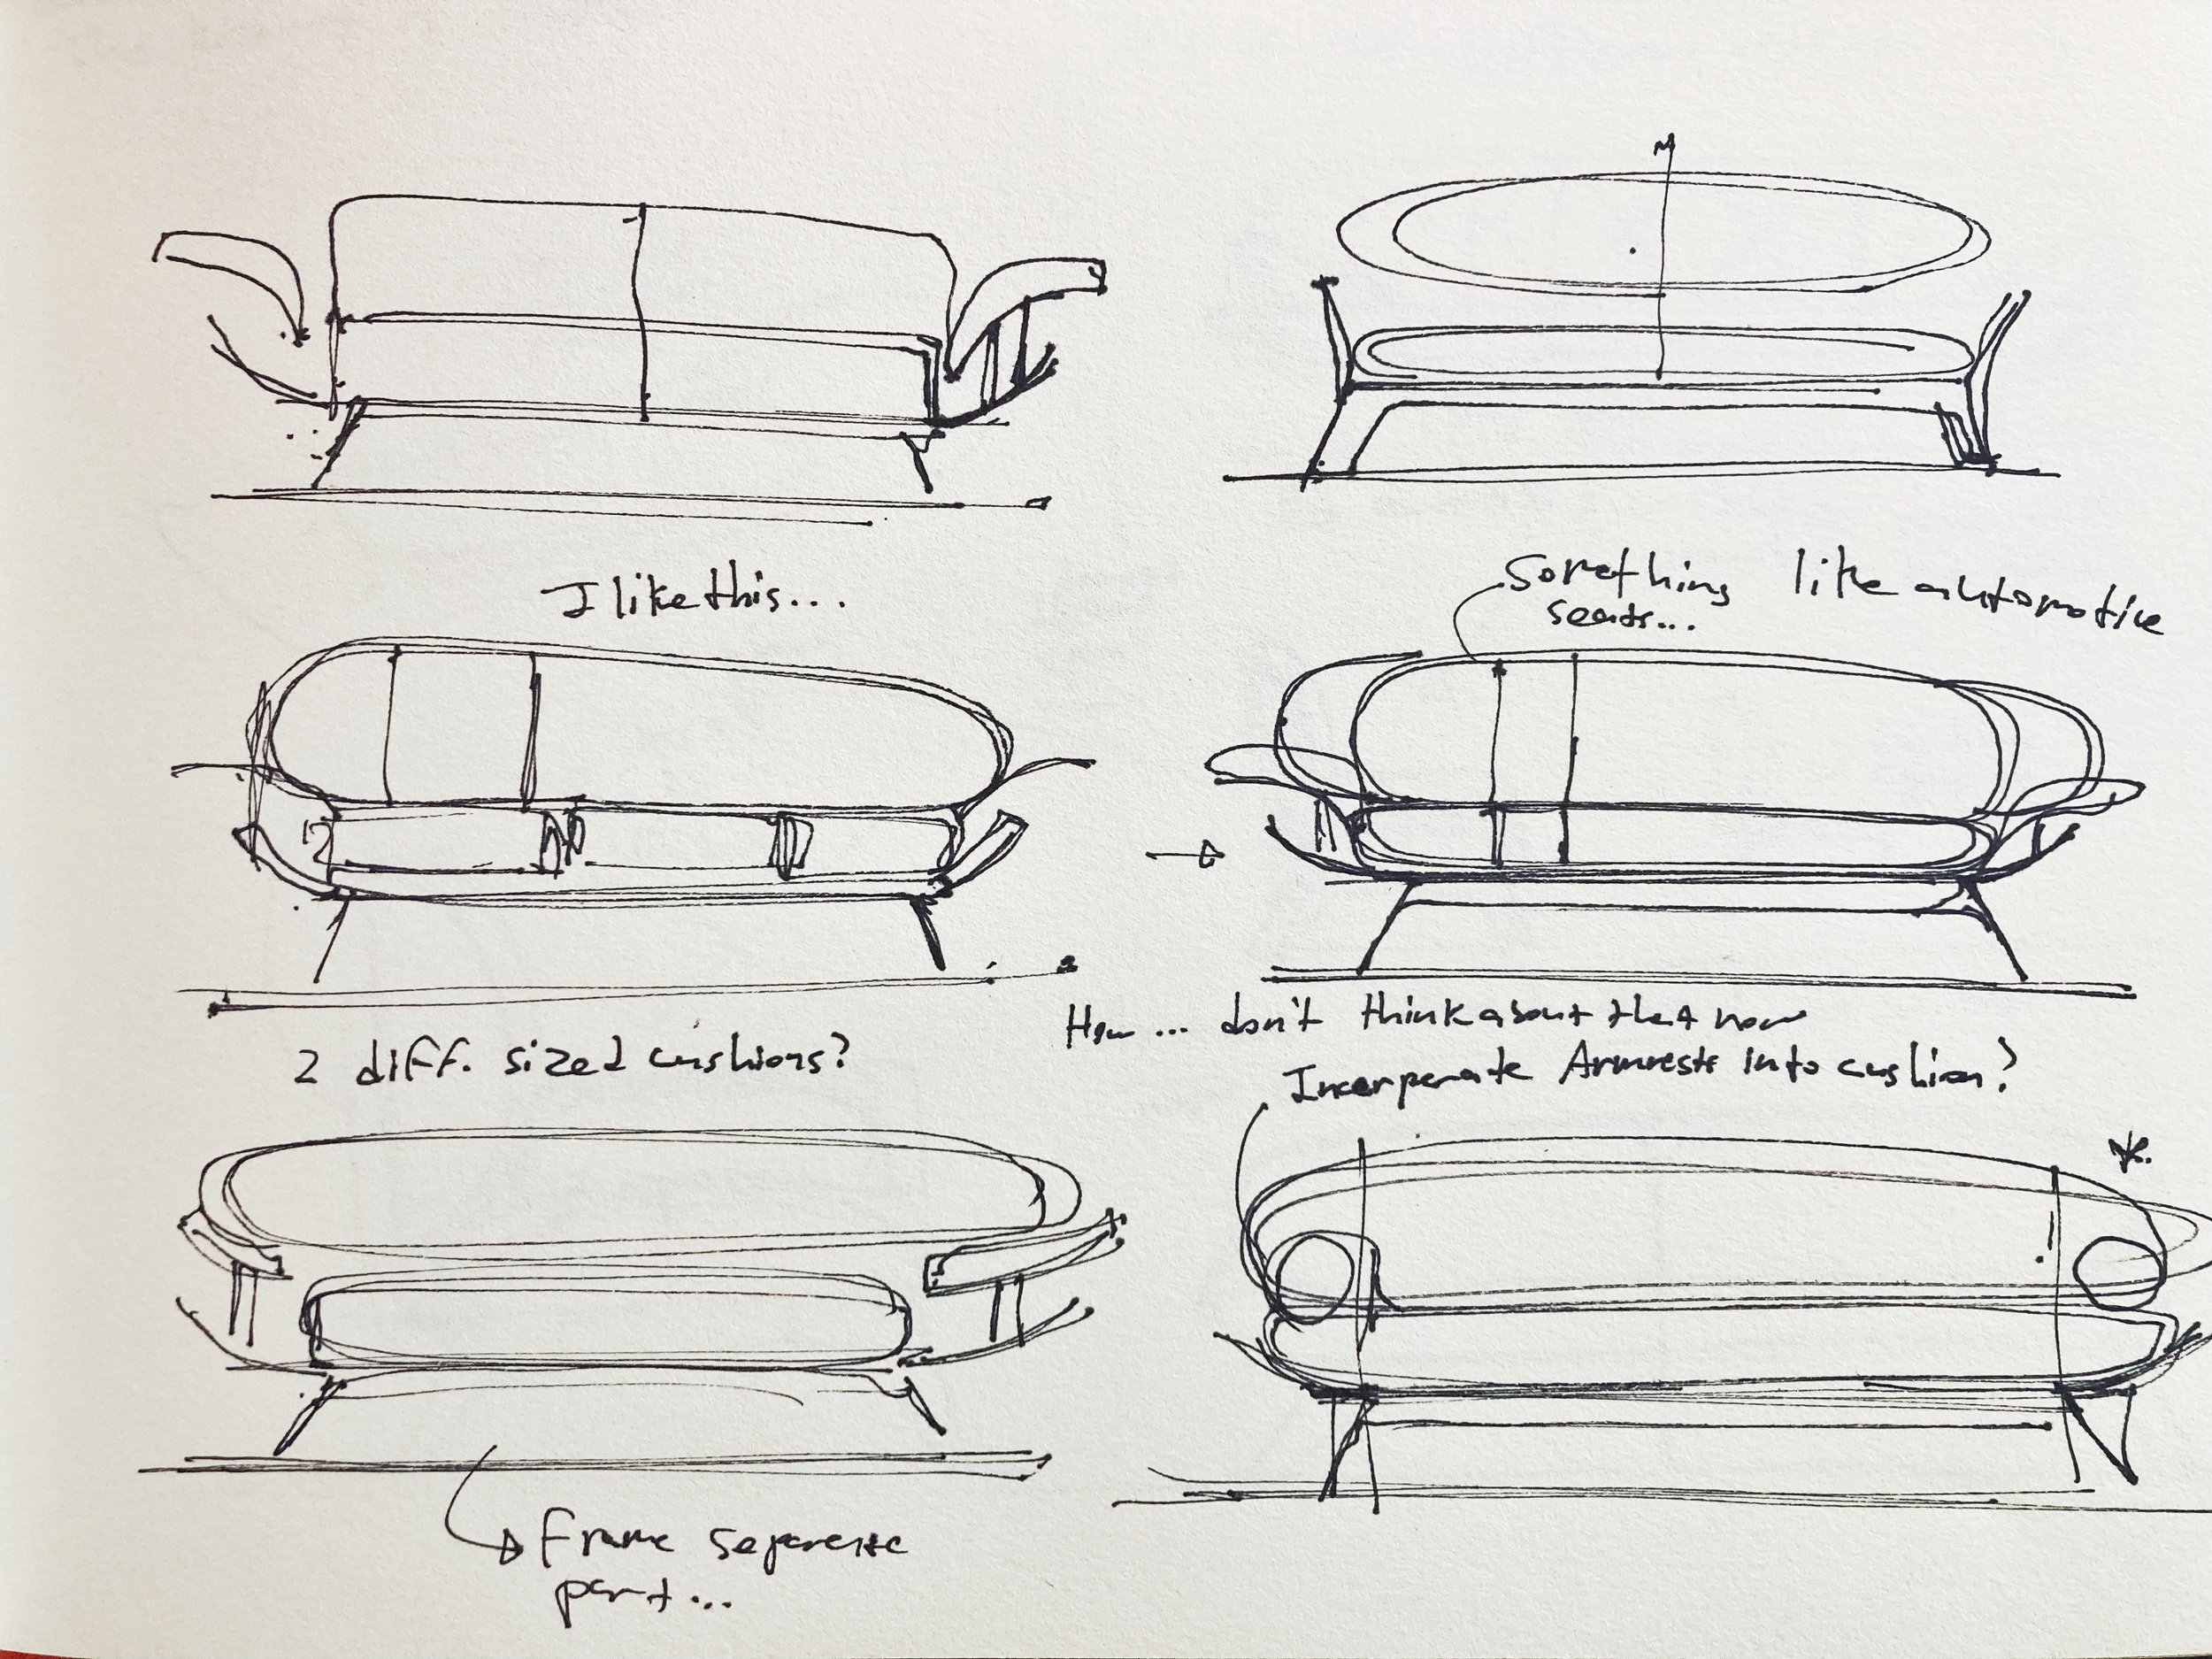 I like this...
Something like automotive
seats...
2 diff. sized cushions?
Hm... don't think about that now
Incorperate Armrests into cushion?
Frame seperate
part...